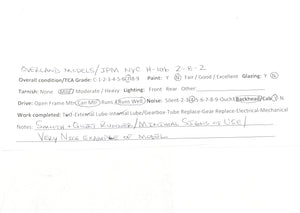 OVERLAND MODELS/JPM NYC H-10b 2-8-2
Overall condition/TCA Grade: C-1-2-3-4-5-6-7-8-9 Paint: Y N Fair / Good / Excellent Glazing: Y N
Tarnish: None Mild / Moderate / Heavy Lighting: Front Rear Other
Drive: Open Frame Mtr Can Mtr Runs Runs Well Noise: Silent 1-2-3-4-5-6-7-8-9 Ouch! Backhead/Cab Y N
Work completed: External Lube-Internal Lube/Gearbox-Tube Replace-Gear Replace-Electrical-Mechanical
Notes: SMOOTH + QUIET RUNNER/MINIMAL SIGNS OF USE/
VERY NICE EXAMPLE OF MODEL